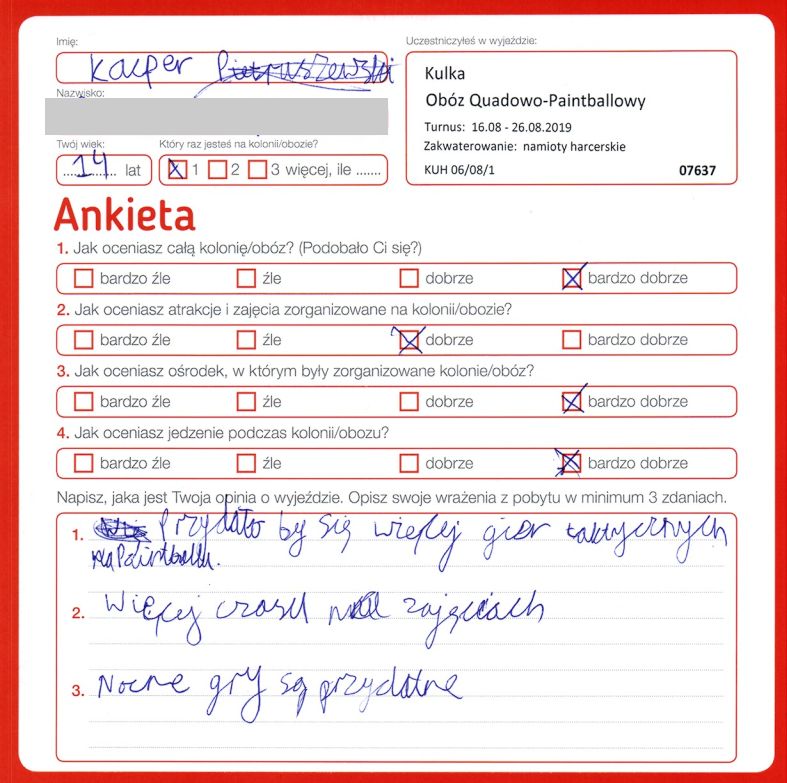 Imię:
Kacper Pietruszewski
Nazwisko:
Twój wiek:
14 lat
Który raz jesteś na kolonii/obozie?
1 2 3 więcej, ile .......
Uczestniczyłeś w wyjeździe:
Kulka
Obóz Quadowo-Paintballowy
Turnus: 16.08 - 26.08.2019
Zakwaterowanie: namioty harcerskie
KUH 06/08/1 07637
Ankieta
1. Jak oceniasz całą kolonię/obóz? (Podobało Ci się?)
bardzo źle źle dobrze bardzo dobrze
2. Jak oceniasz atrakcje i zajęcia zorganizowane na kolonii/obozie?
bardzo źle źle dobrze bardzo dobrze
3. Jak oceniasz ośrodek, w którym były zorganizowane kolonie/obóz?
bardzo źle źle dobrze bardzo dobrze
4. Jak oceniasz jedzenie podczas kolonii/obozu?
bardzo źle źle dobrze bardzo dobrze
Napisz, jaka jest Twoja opinia o wyjeździe. Opisz swoje wrażenia z pobytu w minimum 3 zdaniach.
1. Przydało by się więcej gier taktycznych
na Paintballu.
2. Więcej czasu na zajęciach
3. Nocne gry są przydatne